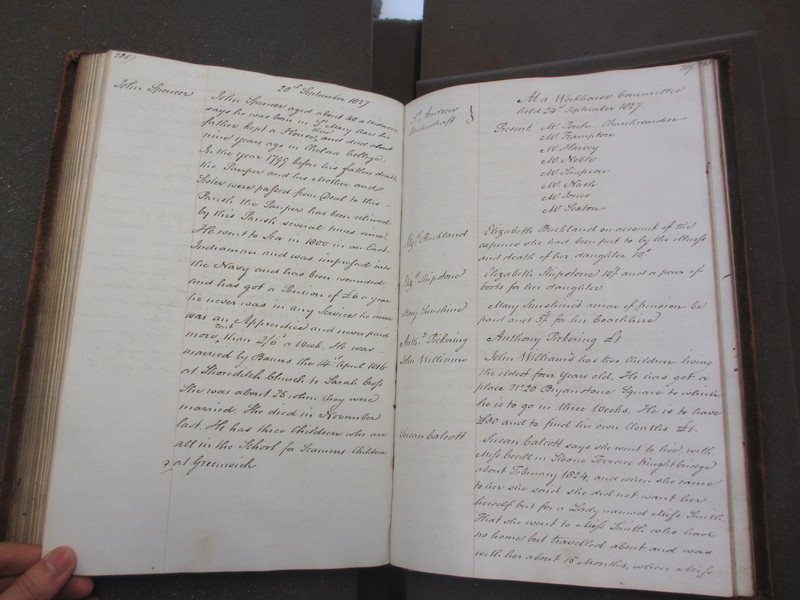 20th September 1827
John Spencer
John Spencer aged about 40 a
says he was born in St Mary Axe his
father kept a House there and died about
nine years ago in Chelsea College.
In the year 1799 before his fathers death
the Pauper and his Mother and
Sister were passed from Deal to this
Parish the Pauper has been relieved
by this Parish several times since
He went to Sea in 1800 in an East
Indiaman and was impressed into
the Navy and has been wounded
and has got a Pension of £6 a year
he never was in any Service he never
was an Apprentice and never paid
more rent than 2/6 a Week He was
married by Banns the 14th April 1816
at Shoreditch Church to Sarah
She was about 25 when they were
married. She died in November
last. He has three Children who are
all in the School for Seamens Children
at Greenwich
St Andrew
Undershaft
At a Workhouse Committee
held 24th September 1827
Present Mr Churchwarden
Mr Frampton
Mr Harvey
Mr Noble
Mr Simpson
Mr Nash
Mr Jones
Mr Sexton
Elizth Buckland
Elizabeth Buckland on account of the
expence she had been put to by the illness
and death of her daughter 10s
Elizth Shipstone
Elizabeth Shipstone 10/ and a pair of
boots for her daughter
Mary Sunshine
Mary Sunshine's arrear of pension be
paid and 5/ for her Coachhire
Anthy Pickering
Anthony Pickering £1
John Williams
John Williams has two Children living
the eldest four years old. He has got a
place No 20 Bryanstone Square to which
he is to go in three Weeks. He is to have
£30 and to find his own Cloaths £1.
Susan Calcott
Susan Calcott says she went to live with
Miss in Sloane Terrace Knightsbridge
about February 1824, and when she came
to her she said she did not want her
herself but for a Lady named Miss Smith
That she went to Miss Smith who have
no home but travelled about and was
with her about 15 Months, when Miss